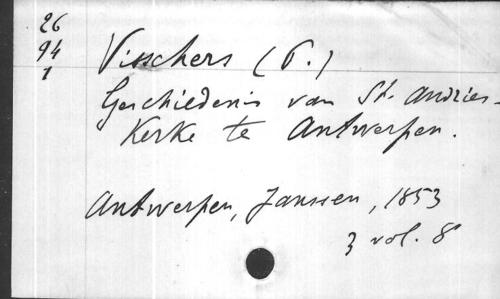 26
94
1
Visschers (P.)
Geschiedenis van St. Andries-
Kerke te Antwerpen.
Antwerpen, Janssen, 1853
3 vol. 8°